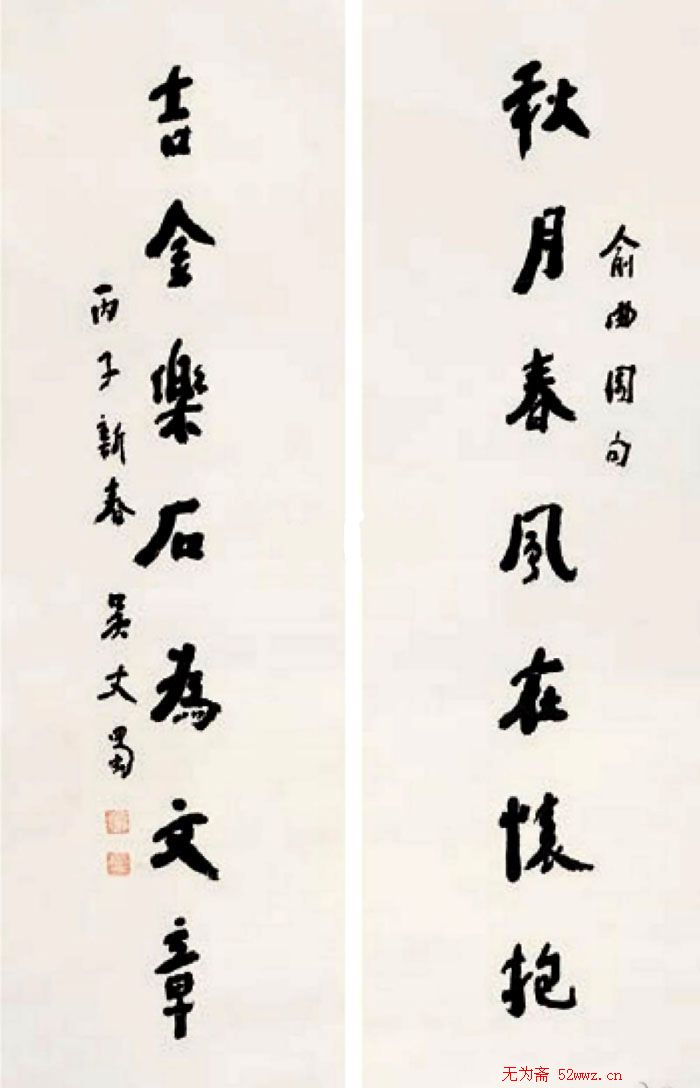 俞曲園句
秋月春風在懷抱
吉金樂石為文章
丙子新春 吴丈蜀
无为斋 52wwz.cn